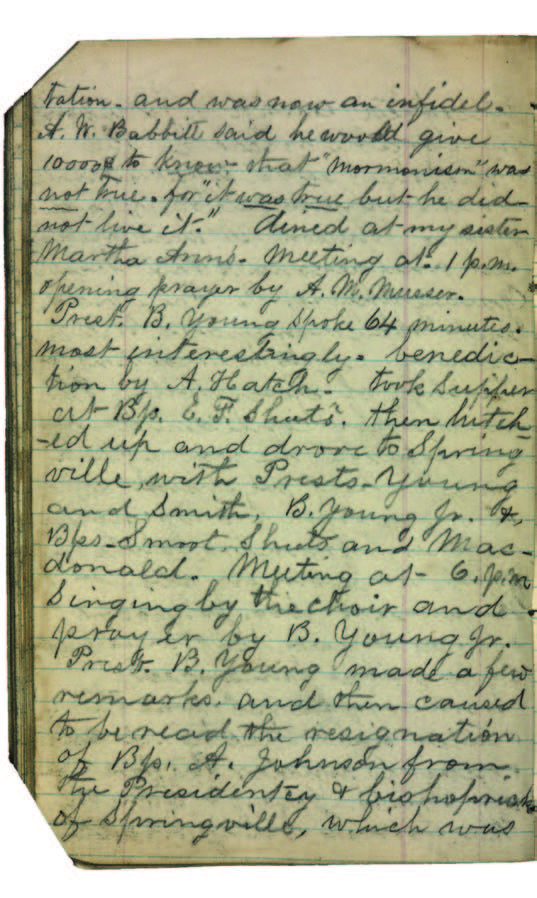 tation. and was now an infidel.
A. W. Babbitt said he would give
10000$ to know that "Mormonism" was
not true. for "it was true but he did
not live it." Dined at my sister
Martha Anns. Meeting at 1 p.m.
opening prayer by A. M. Musser.
Prest. B. Young spoke 64 minutes.
most interestingly. benedic-
tion by A. Hatch. took supper
at Bp. E. F. Sheets. then hitch-
-ed up and drove to Spring
ville, with Prests. Young
and Smith, B. Young Jr. &
Bps. Smoot, Sheets and Mac-
donald. Meeting at 6. p.m
Singing by the choir and
prayer by B. Young Jr.
Prest. B. Young made a few
remarks. and then caused
to be read the resignation
of Bp. A. Johnson from
the Presidentcy & bishoprick
of Springville, which was